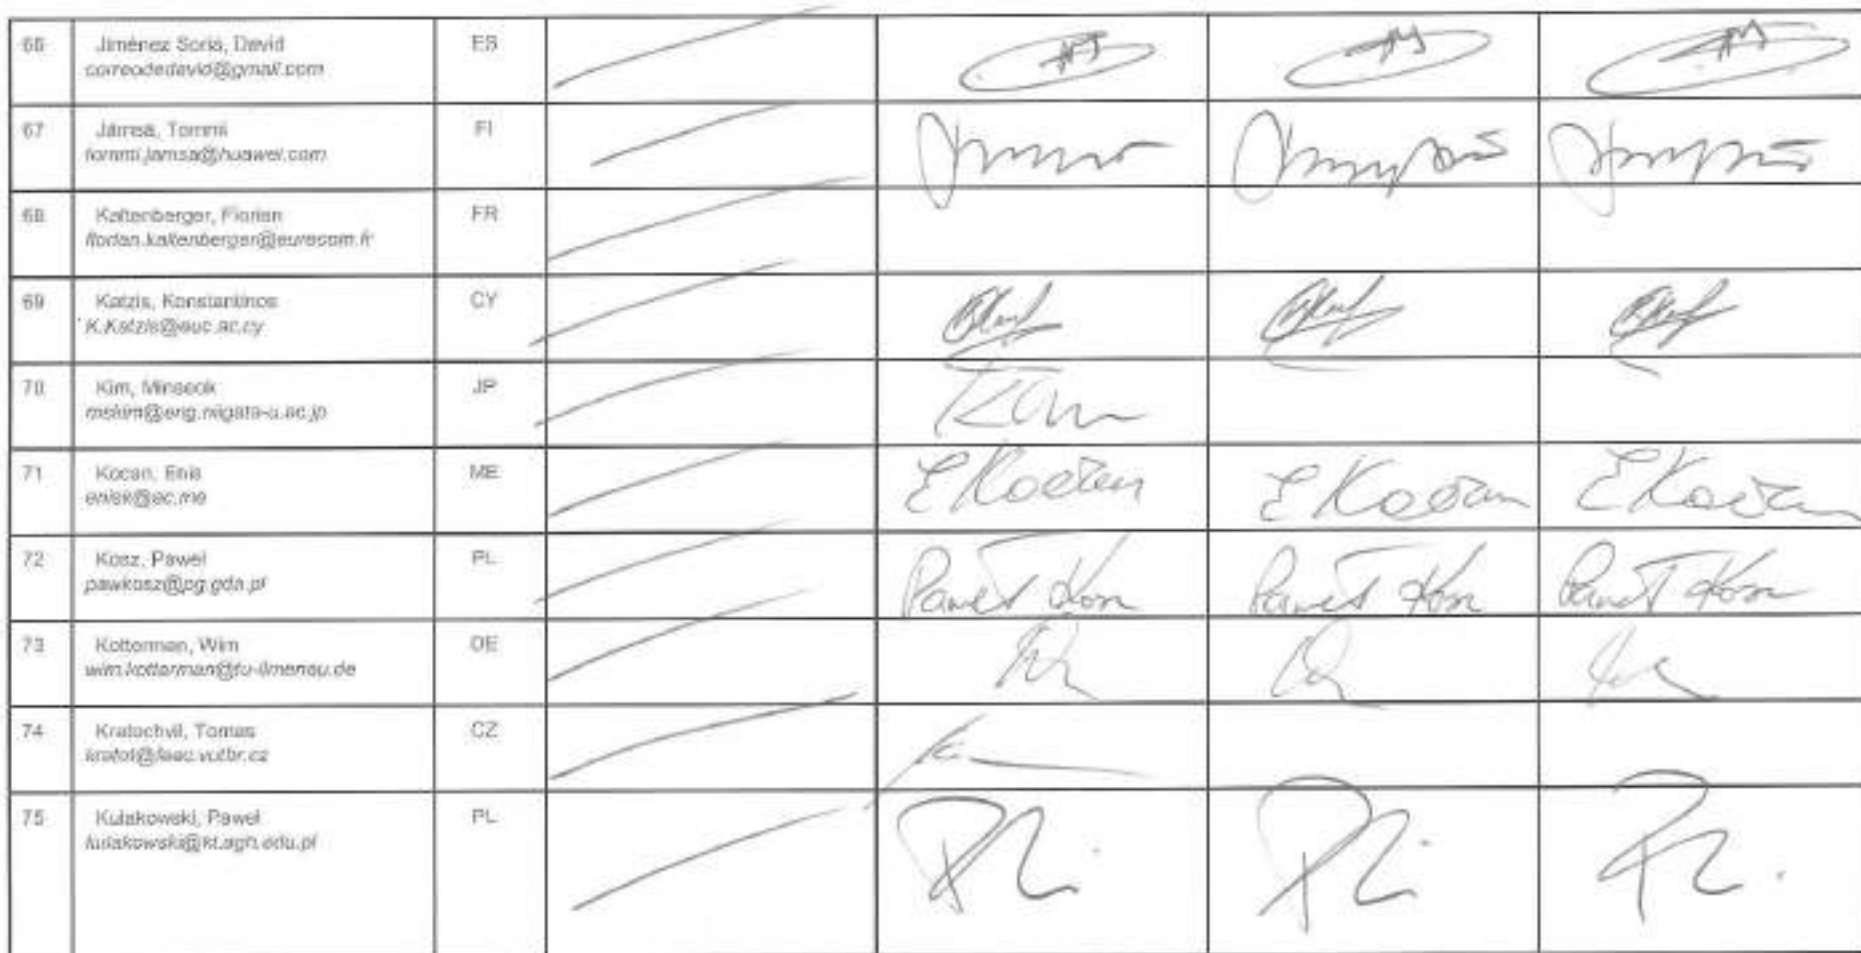 66 Jiménez Soria, David ES
correodedavid@gmail.com
67 Jämsä, Tommi FI
tommi.jamsa@huawei.com
68 Kaltenberger, Florian FR
florian.kaltenberger@eurecom.fr
69 Katzis, Konstantinos CY
K.Katzis@euc.ac.cy
70 Kim, Minseok JP
mskim@eng.niigata-u.ac.jp
Kim
71 Kocan, Enis ME
enisk@ac.me
E Kočan E Kočan E Kočan
72 Kosz, Pawel PL
pawkosz@pg.gda.pl
Paweł Kosz Paweł Kosz Paweł Kosz
73 Kotterman, Wim DE
wim.kotterman@tu-ilmenau.de
74 Kratochvil, Tomas CZ
kratot@feec.vutbr.cz
75 Kulakowski, Pawel PL
kulakowski@kt.agh.edu.pl